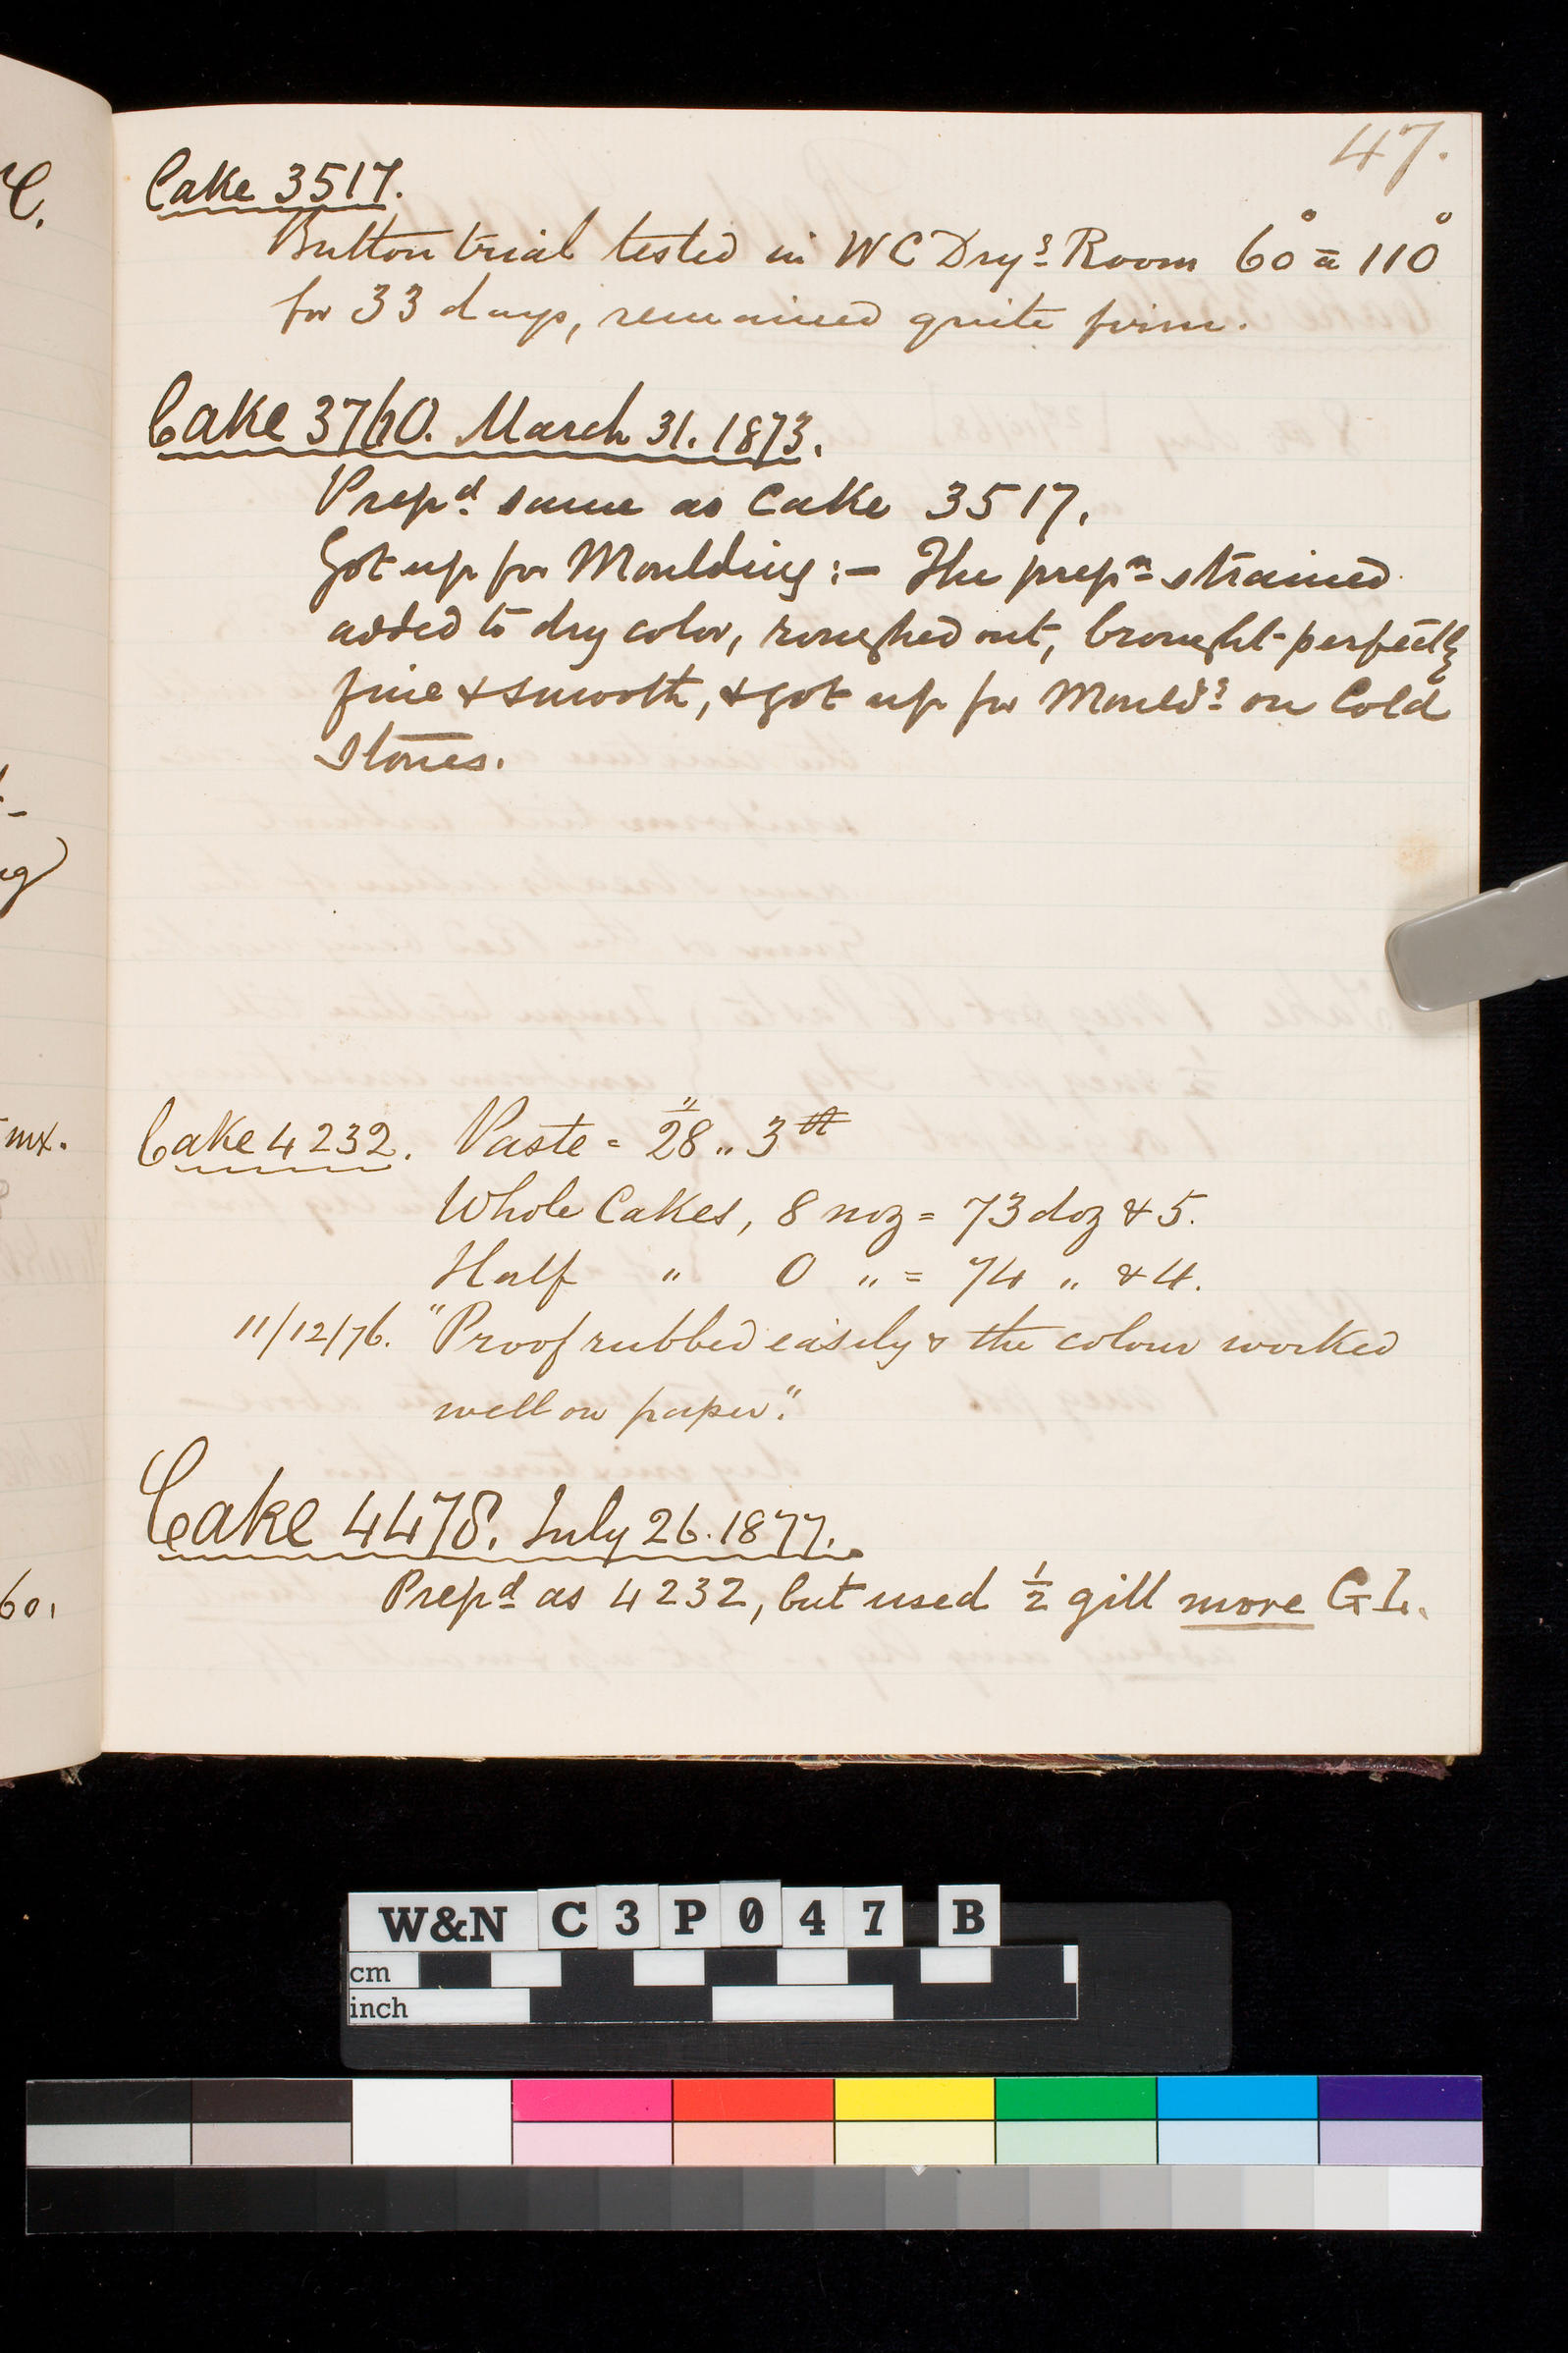 47.
Cake 3517.
Button trial tested in WC Dryg Room 60° a 110°
for 33 days, remained quite firm.
Cake 3760. March 31. 1873.
Prepd same as Cake 3517.
Got up for Moulding :- The prepn strained
added to dry color, roughed out, brought perfectly
fine & smooth, & got up for Mouldg on Cold
Stones.
Cake 4232. Paste = 28 „ 3
Whole Cakes, 8 noz = 73 doz & 5.
Half „ 0 „ = 74 „ & 4.
11/12/76. "Proof rubbed easily & the colour worked
well on paper."
Cake 4478. July 26. 1877.
Prepd as 4232, but used ½ gill more GL.
mx.
60.
W&N C3P047 B
cm
inch